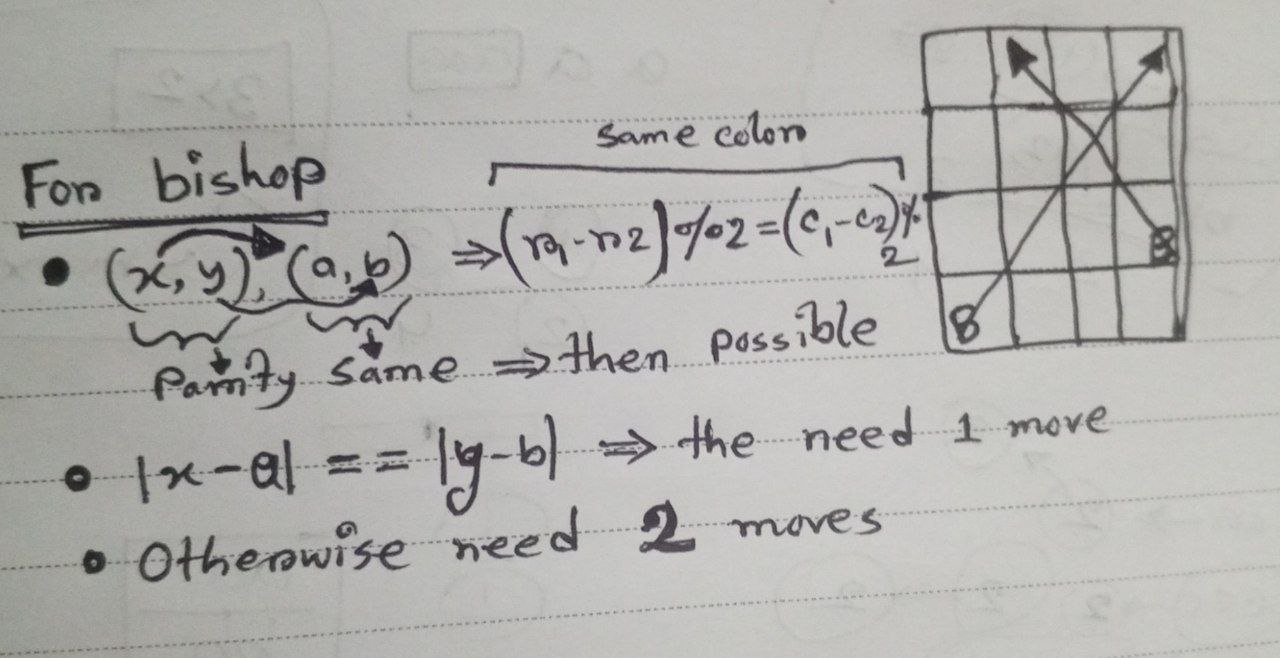 same color
For bishop
• (x, y), (a, b) ⇒ (r1 - r2)%2 = (c1 - c2)%2
Parity same ⇒ then possible
• |x - a| == |y - b| ⇒ the need 1 move
• Otherwise need 2 moves
B
B